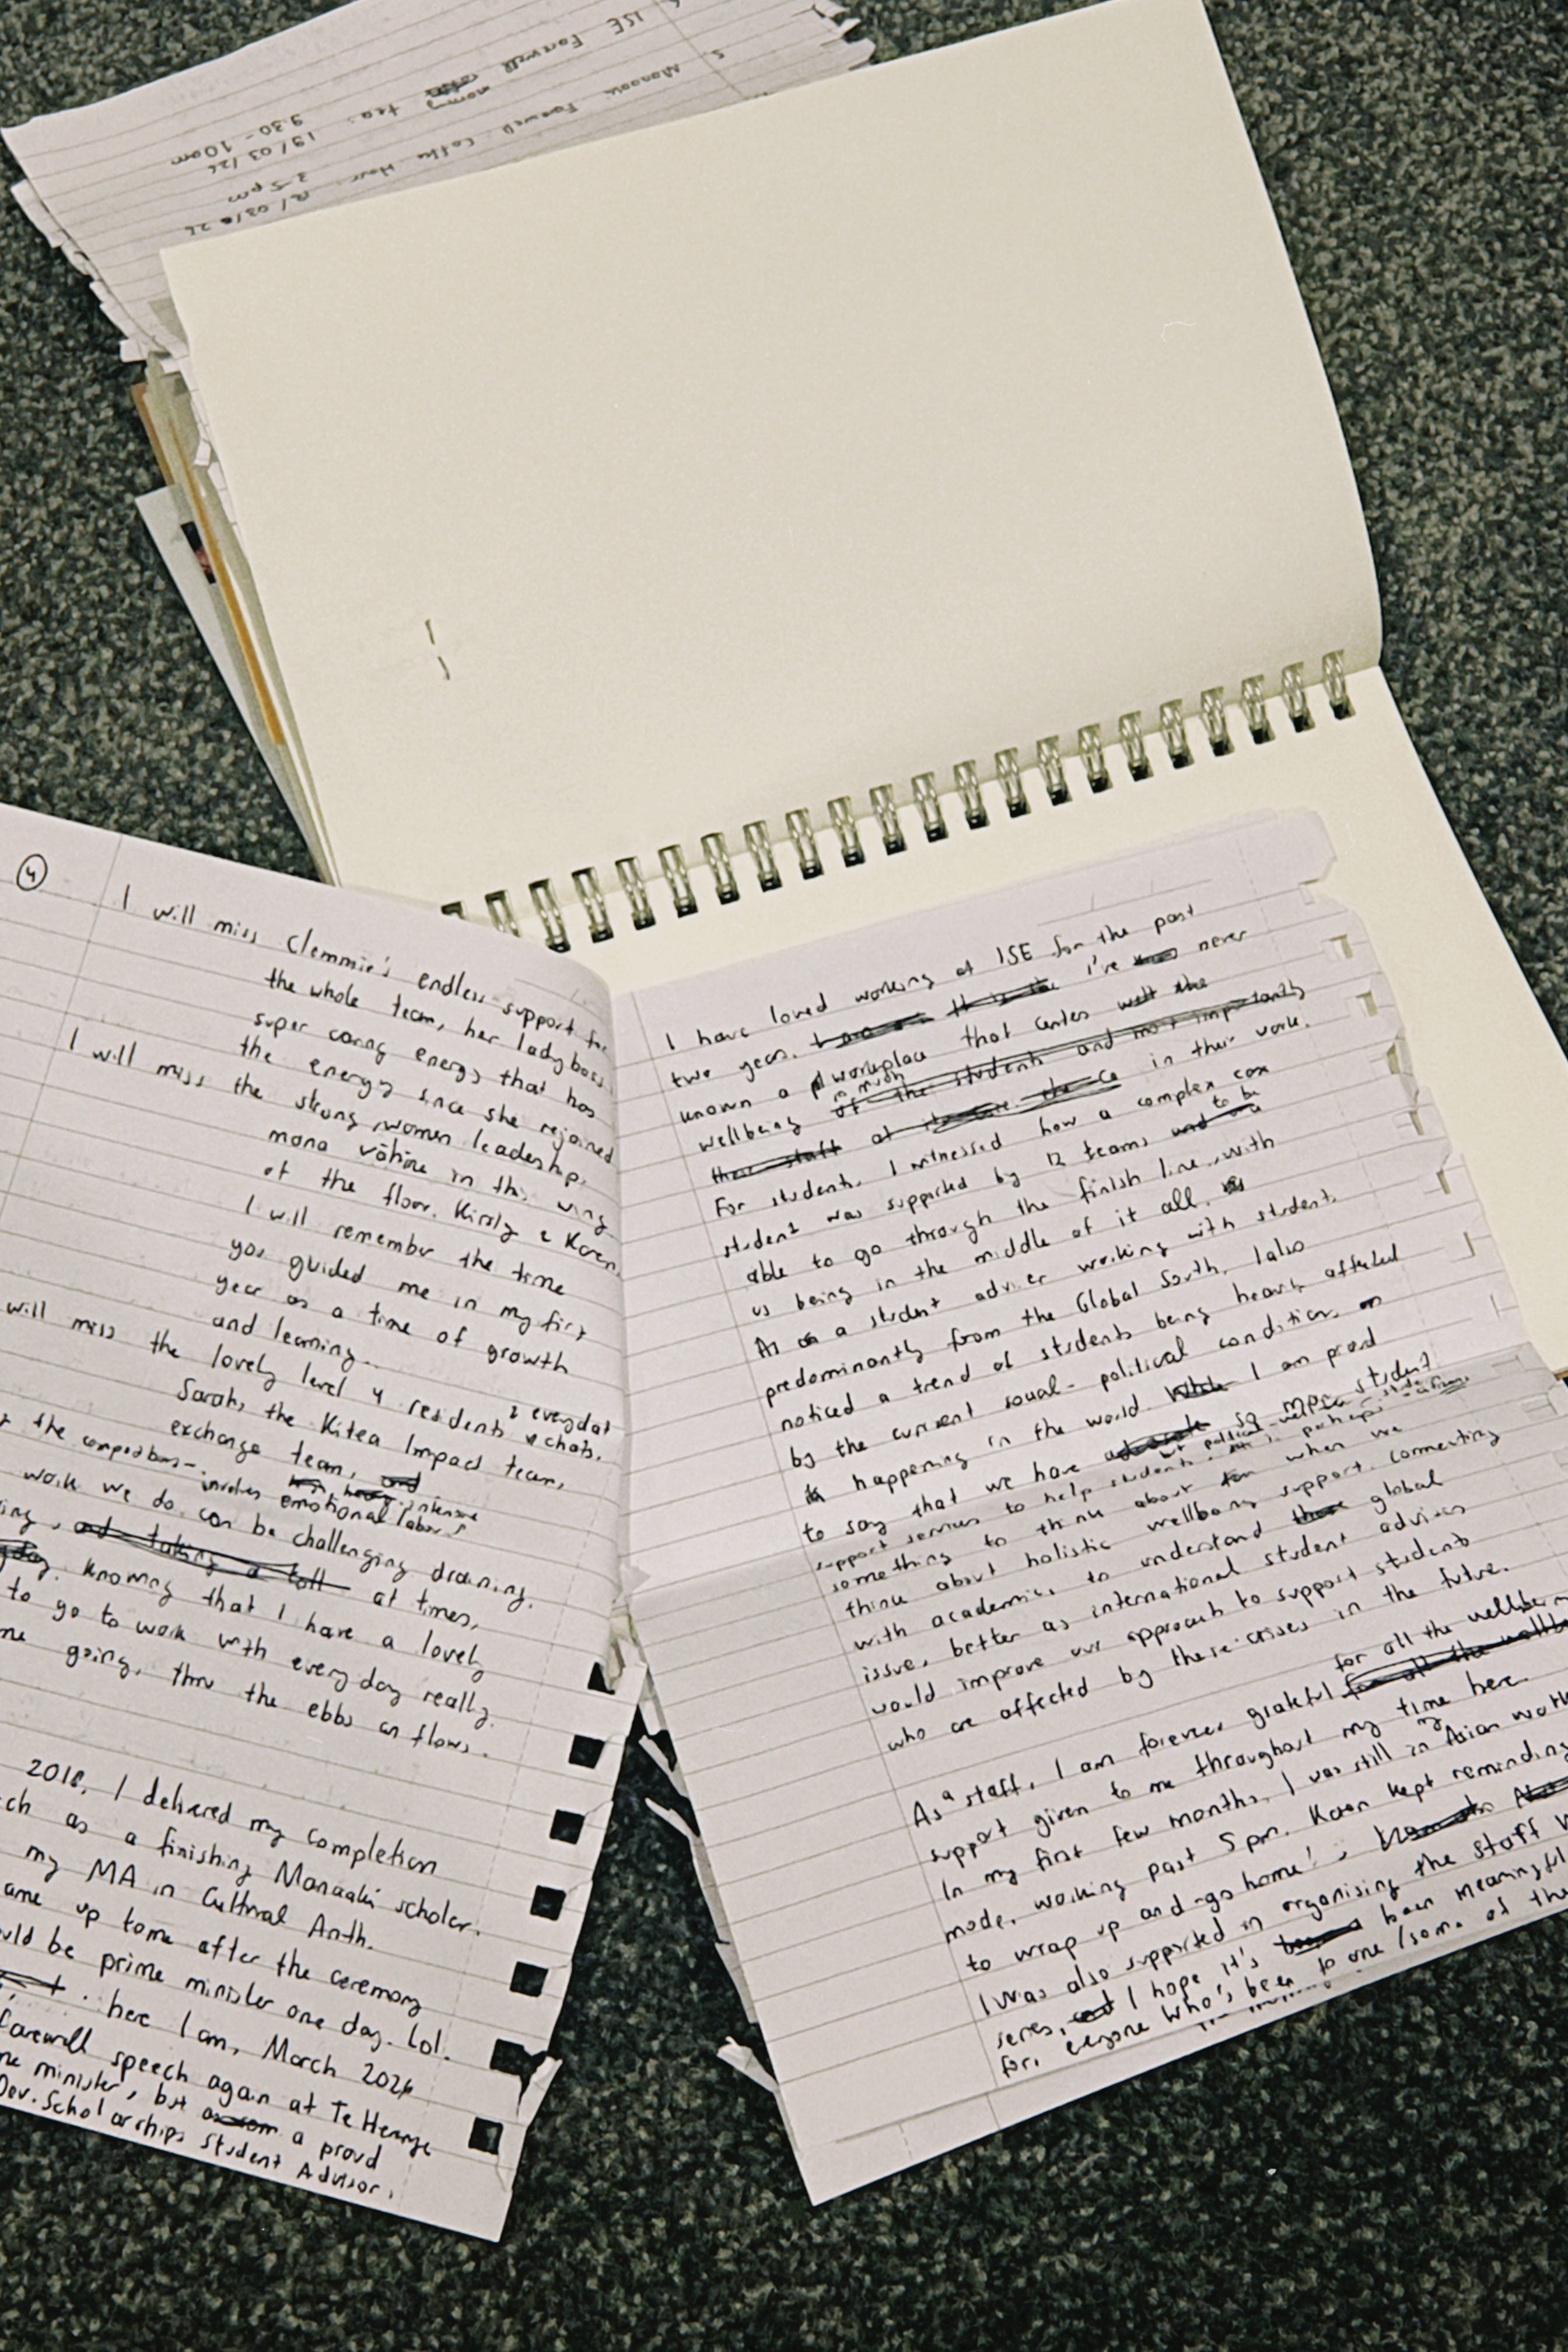 ISE Farewell
morning tea:
19/03/26
9:30 - 10am
Manaaki Farewell Coffee Hour:
3-5pm
④
I will miss Clemmie's endless support for
the whole team, her ladyboss,
super caring energy that has
the energy since she rejoined
I will miss the strong women leadership,
mana vāhine in this wing
of the floor. Kirsty & Karen,
I will remember the time
you guided me in my first
year as a time of growth
and learning.
will miss the lovely level 4 residents & everyday chats.
Sarah, the Kitea Impact team,
exchange team, and
the compassion- involves heavy intensive
emotional labour,
work we do can be challenging draining.
and taking a toll at times,
Knowing that I have a lovely
to go to work with every day really
me going, thru the ebbs an flows.
2018, I delivered my completion
as a finishing Manaaki scholar.
my MA in Cultural Anth.
ame up to me after the ceremony
uld be prime minister one day. Lol.
here I am, March 2026
farewell speech again at Te Herenga
me minister, but as a proud
Dev. Scholarships Student Advisor.
I have loved working at ISE for the past
two years. It is the I've never
known a workplace that centers well the
wellbeing in much of the students and most importantly
their staff at its in their work.
For students, I witnessed how a complex
student was supported by 12 teams to be
able to go through the finish line, with
us being in the middle of it all.
As a student adviser working with students
predominantly from the Global South, I also
noticed a trend of students being heavily affected
by the current social-political conditions
happening in the world. While I am proud
to say that we have advocate so many student
support services to help students,
something to think about when we
think about holistic wellbeing support. Connecting
with academics to understand these global
issues better as international student advisers
would improve our approach to support students
who are affected by these crises in the future.
As a staff, I am forever grateful for all the wellbeing
support given to me throughout my time here.
In my first few months, I was still in my Asian work
mode, working past 5 pm. Karen kept reminding
to wrap up and 'go home!',
I was also supported in organising the staff
series, and I hope it's been meaningful
for, everyone who's been to one/some of the